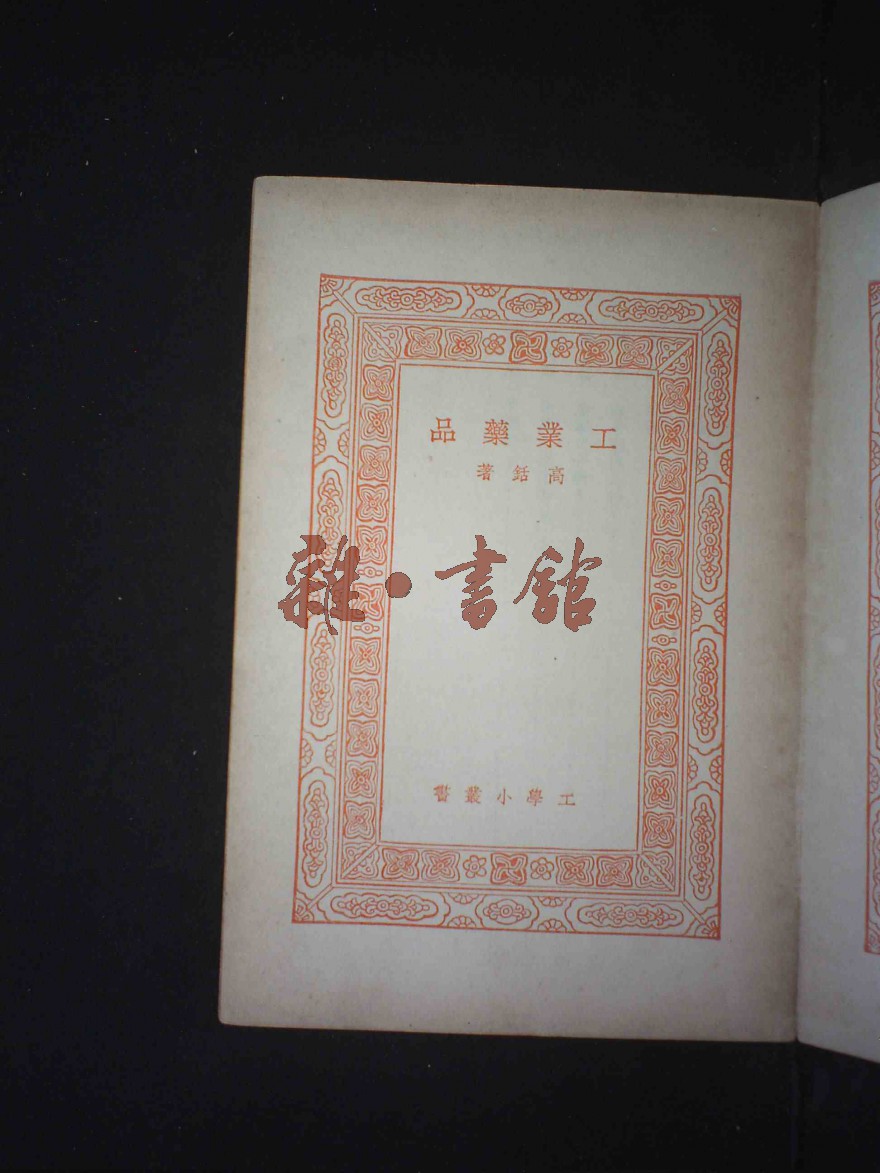 工業藥品
高銛著
雜·書館
工學小叢書